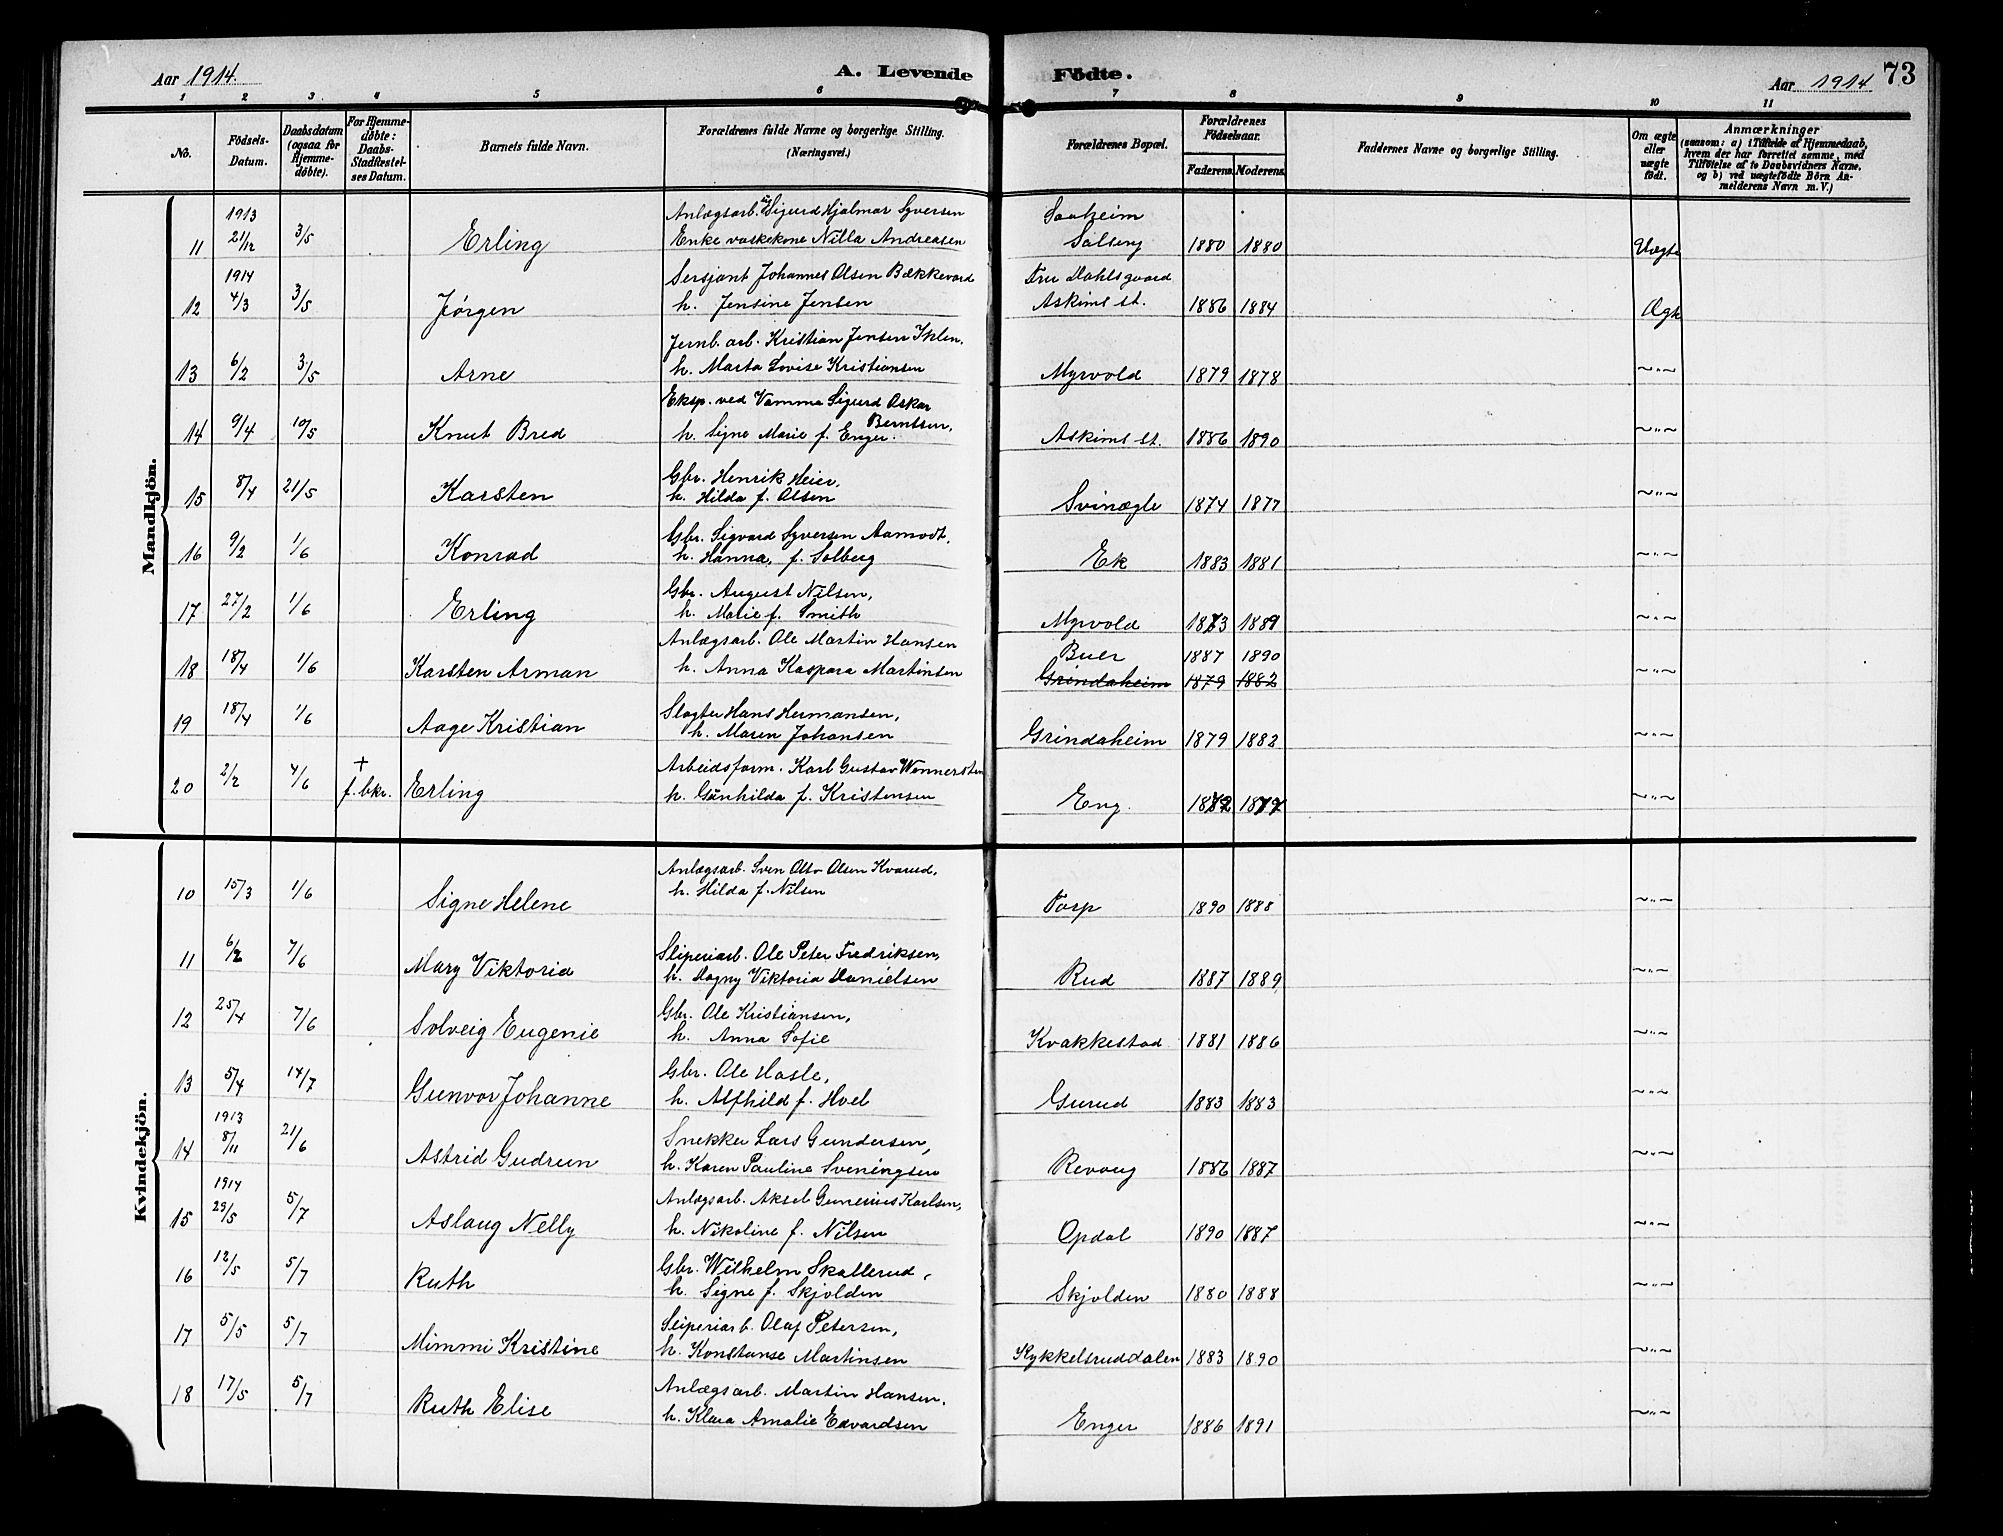 Aar 1914. A. Levende Födte. Aar 1914 73
1 2 3 4 5 6 7 8 9 10 11
No.
Födsels-Datum.
Daabsdatum (ogsaa for Hjemme-döbte).
For Hjemme-döbte: Daabs-Stadfæstel-ses Datum.
Barnets fulde Navn.
Forældrenes fulde Navne og borgerlige Stilling.
(Næringsvei.)
Forældrenes Bopæl.
Forældrenes Födselsaar.
Faderens. Moderens.
Faddernes Navne og borgerlige Stilling.
Om ægte eller uægte födt.
Anmærkninger
(saasom: a) i Tilfælde af Hjemmedaab,
hvem der har forrettet samme, med
Tilföielse af to Daabsvidners Navne,
og b) ved uægtefödte Börn An-
melderens Navn m. V.)
Mandkjön.
1913 Anlægsarb. Sigurd Hjalmar Syversen Saaheim
11 21/12 3/5 Erling Enke vaskekone Nilla Andreasen Solberg 1880 1880 Uægte
1914 Sersjant Johannes Olsen Bækkevard Fru Dahlsgaard
12 4/3 3/5 Jørgen h. Jensine Jensen Askims st. 1886 1884 Ægte
Jernb. arb. Kristian Jensen Ihlen,
13 6/2 3/5 Arne h. Marta Lovise Kristiansen Myrvold 1879 1878 ~"~
Eksp. ved Vamma Sigurd Oskar Berntsen,
14 9/4 10/5 Knut Bred h. Signe Marie f. Enger. Askims st. 1886 1890 ~"~
Gbr. Henrik Heier,
15 8/4 21/5 Karsten h. Hilda f. Olsen Svinægle 1874 1877 ~"~
Gbr. Sigvard Syversen Aamodt,
16 9/2 1/6 Konrad h. Hanna, f. Solberg Ek 1883 1881 ~"~
Gbr. August Nilsen,
17 27/2 1/6 Erling h. Marie f. Smith Myrvold 1883 1889 ~"~
Anlægsarb. Ole Martin Hansen Buer 1887 1890
18 18/4 1/6 Karsten Arman h. Anna Kaspara Martinsen Grindaheim 1879 1882 ~"~
Slagter Hans Hermansen,
19 18/4 1/6 Aage Kristian h. Maren Johansen Grindaheim 1879 1882 ~"~
+ Arbeidsform. Karl Gustav Wennersten
20 2/2 4/6 f. bkr. Erling h. Gunhilda f. Kristensen Eng. 1872 1877 ~"~
Kvindekjön.
Anlægsarb. Sven Otto Olsen Kvarud,
10 15/3 1/6 Signe Helene h. Hilda f. Nilsen Torp 1890 1888 ~"~
Sliperiarb. Ole Peter Fredriksen,
11 6/2 7/6 Mary Viktoria h. Dagny Viktoria Danielsen Rud 1887 1889 ~"~
Gbr. Ole Kristiansen,
12 25/4 7/6 Solveig Eugenie h. Anna Sofie Kvakkestad 1881 1886 ~"~
Gbr. Ole Hasle,
13 5/4 14/7 Gunvor Johanne h. Alfhild f. Hoel Gurud 1883 1883 ~"~
1913 Snekker Lars Gundersen,
14 8/11 21/6 Astrid Gudrun h. Karen Pauline Sveningsen Revoug 1886 1887 ~"~
1914 Anlægsarb. Aksel Gunerius Karlsen,
15 29/5 5/7 Aslaug Nelly h. Nikoline f. Nilsen Opdal 1890 1887 ~"~
Gbr. Wilhelm Skallerud,
16 12/5 5/7 Ruth h. Signe f. Skjolden Skjolden 1880 1888 ~"~
Sliperiarb. Olaf Petersen,
17 5/5 5/7 Mimmi Kristine h. Konstanse Martinsen Kykkelsruddalen 1883 1890 ~"~
Anlægsarb. Martin Hansen,
18 17/5 5/7 Ruth Elise h. Klara Amalie Edvardsen Enger 1886 1891 ~"~